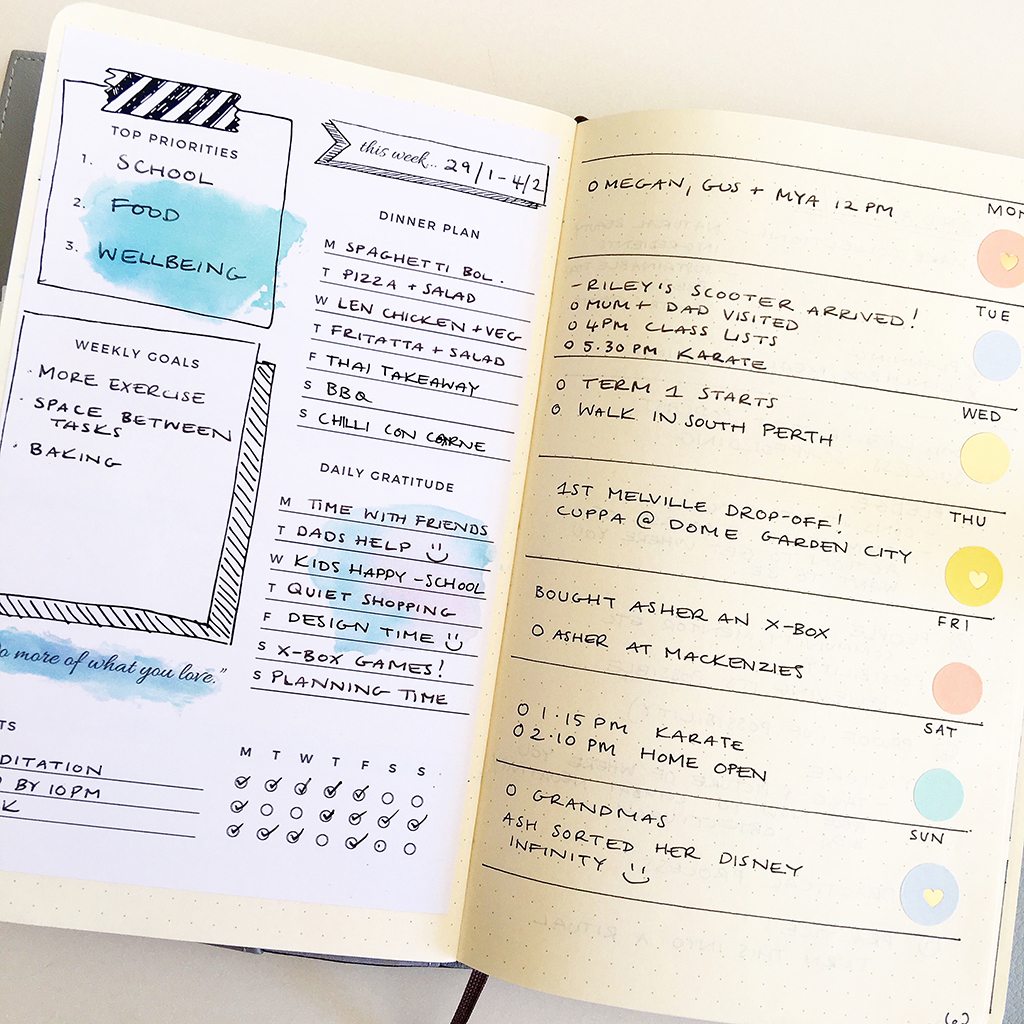 TOP PRIORITIES
1. SCHOOL
2. FOOD
3. WELLBEING
WEEKLY GOALS
· MORE EXERCISE
· SPACE BETWEEN
TASKS
· BAKING
o more of what you love."
TS
DITATION
BY 10PM
K
this week... 29/1-4/2
DINNER PLAN
M SPAGHETTI BOL.
T PIZZA + SALAD
W LEN CHICKEN + VEG
T FRITATTA + SALAD
F THAI TAKEAWAY
S BBQ
S CHILLI CON CARNE
DAILY GRATITUDE
M TIME WITH FRIENDS
T DADS HELP
W KIDS HAPPY - SCHOOL
T QUIET SHOPPING
F DESIGN TIME
S X-BOX GAMES!
S PLANNING TIME
M T W T F S S
MON
O MEGAN, GUS + MYA 12PM
TUE
- RILEY'S SCOOTER ARRIVED!
O MUM + DAD VISITED
O 4PM CLASS LISTS
O 5.30 PM KARATE
WED
O TERM 1 STARTS
O WALK IN SOUTH PERTH
THU
1ST MELVILLE DROP-OFF!
CUPPA @ DOME GARDEN CITY
FRI
BOUGHT ASHER AN X-BOX
O ASHER AT MACKENZIES
SAT
O 1.15 PM KARATE
O 2.10 PM HOME OPEN
SUN
O GRANDMAS
ASH SORTED HER DISNEY
INFINITY